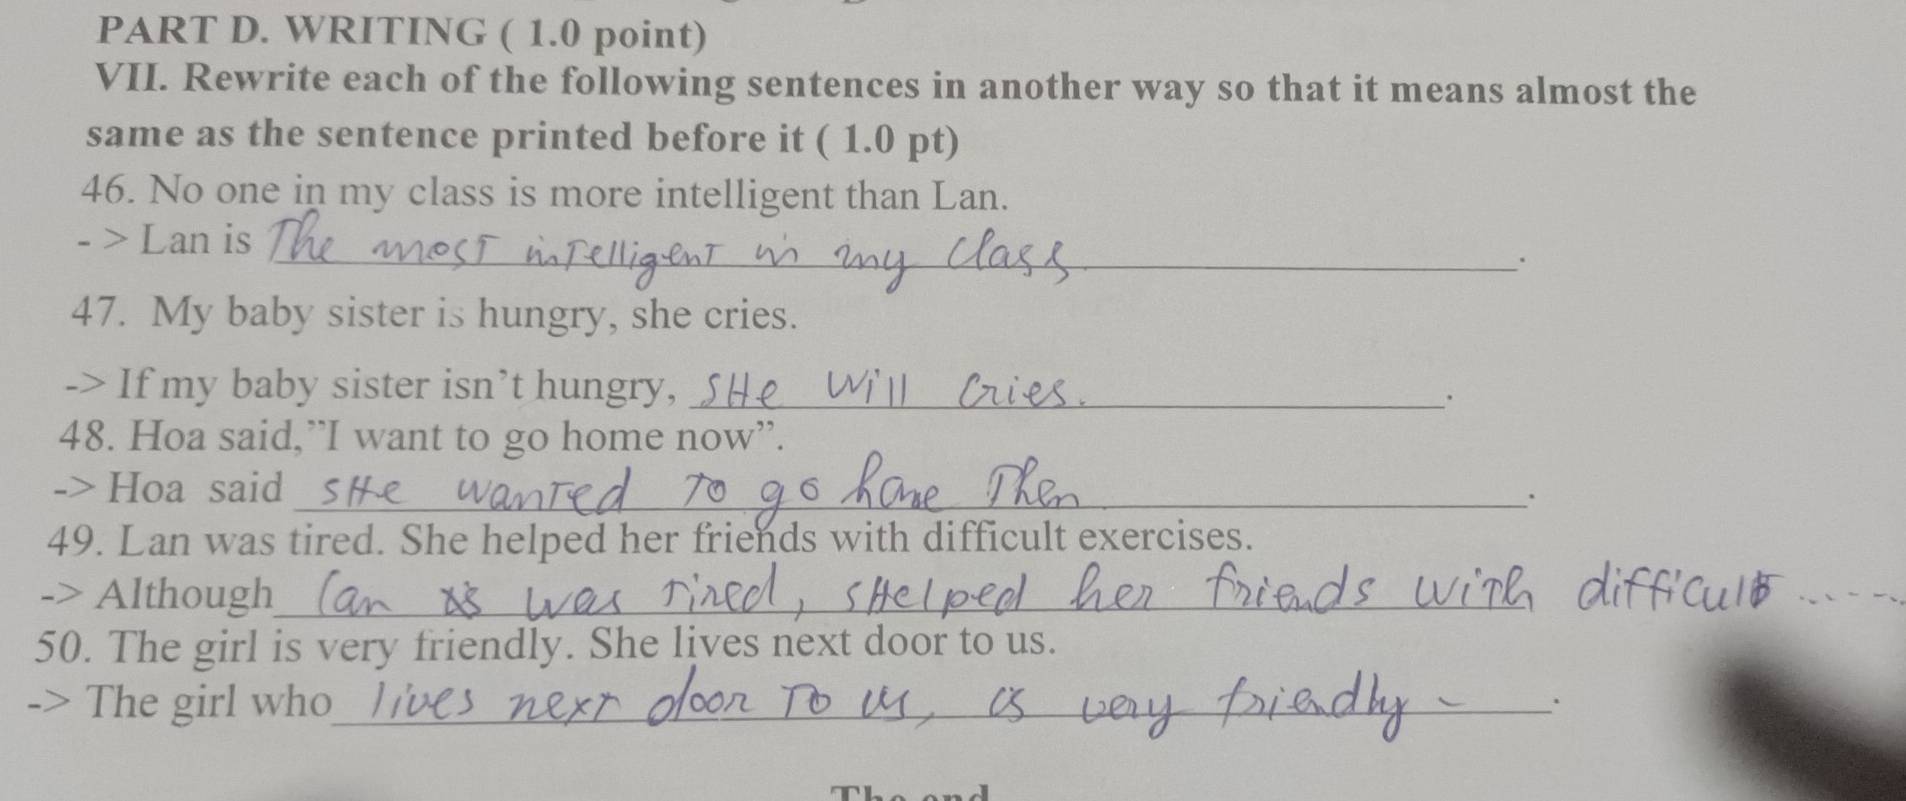 PART D. WRITING ( 1.0 point)
VII. Rewrite each of the following sentences in another way so that it means almost the
same as the sentence printed before it ( 1.0 pt)
46. No one in my class is more intelligent than Lan.
- > Lan is The most intelligent in my class.
47. My baby sister is hungry, she cries.
-> If my baby sister isn't hungry, SHe will cries. .
48. Hoa said,"I want to go home now".
-> Hoa said sHe wanted To go home Then.
49. Lan was tired. She helped her friends with difficult exercises.
-> Although Lan was tired, sHelped her friends with difficult ......
50. The girl is very friendly. She lives next door to us.
-> The girl who lives next door To us, is very friendly - .
The end